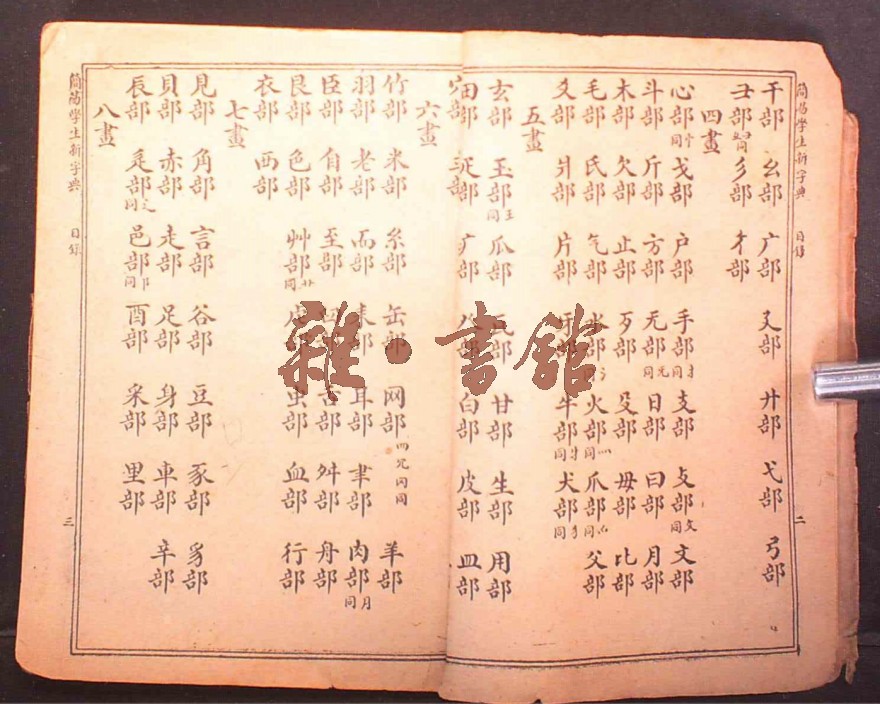 簡易學生新字典 目錄 二
干部 幺部 广部 廴部 廾部 弋部 弓部
彐部 同 彡部 彳部
四畫
心部 忄同 戈部 户部 手部 扌同 支部 攴部 攵同 文部
斗部 斤部 方部 无部 旡同 日部 曰部 月部
木部 欠部 止部 歹部 殳部 毋部 比部
毛部 氏部 气部 水部 火部 灬同 爪部 爫同 父部
爻部 爿部 片部 牙部 牛部 牜同 犬部 犭同
五畫
玄部 玉部 王同 瓜部 瓦部 甘部 生部 用部
田部 疋部 疒部 癶部 白部 皮部 皿部
六畫
竹部 米部 糸部 缶部 网部 羊部
羽部 老部 而部 耒部 耳部 聿部 肉部 月同
臣部 自部 至部 臼部 舌部 舛部 舟部
艮部 色部 艸部 艹同 虍部 虫部 血部 行部
衣部 襾部
七畫
見部 角部 言部 谷部 豆部 豕部 豸部
貝部 赤部 走部 足部 身部 車部 辛部
辰部 辵部 辶同 邑部 阝同 酉部 釆部 里部
八畫
簡易學生新字典 目錄 三
雜·書館